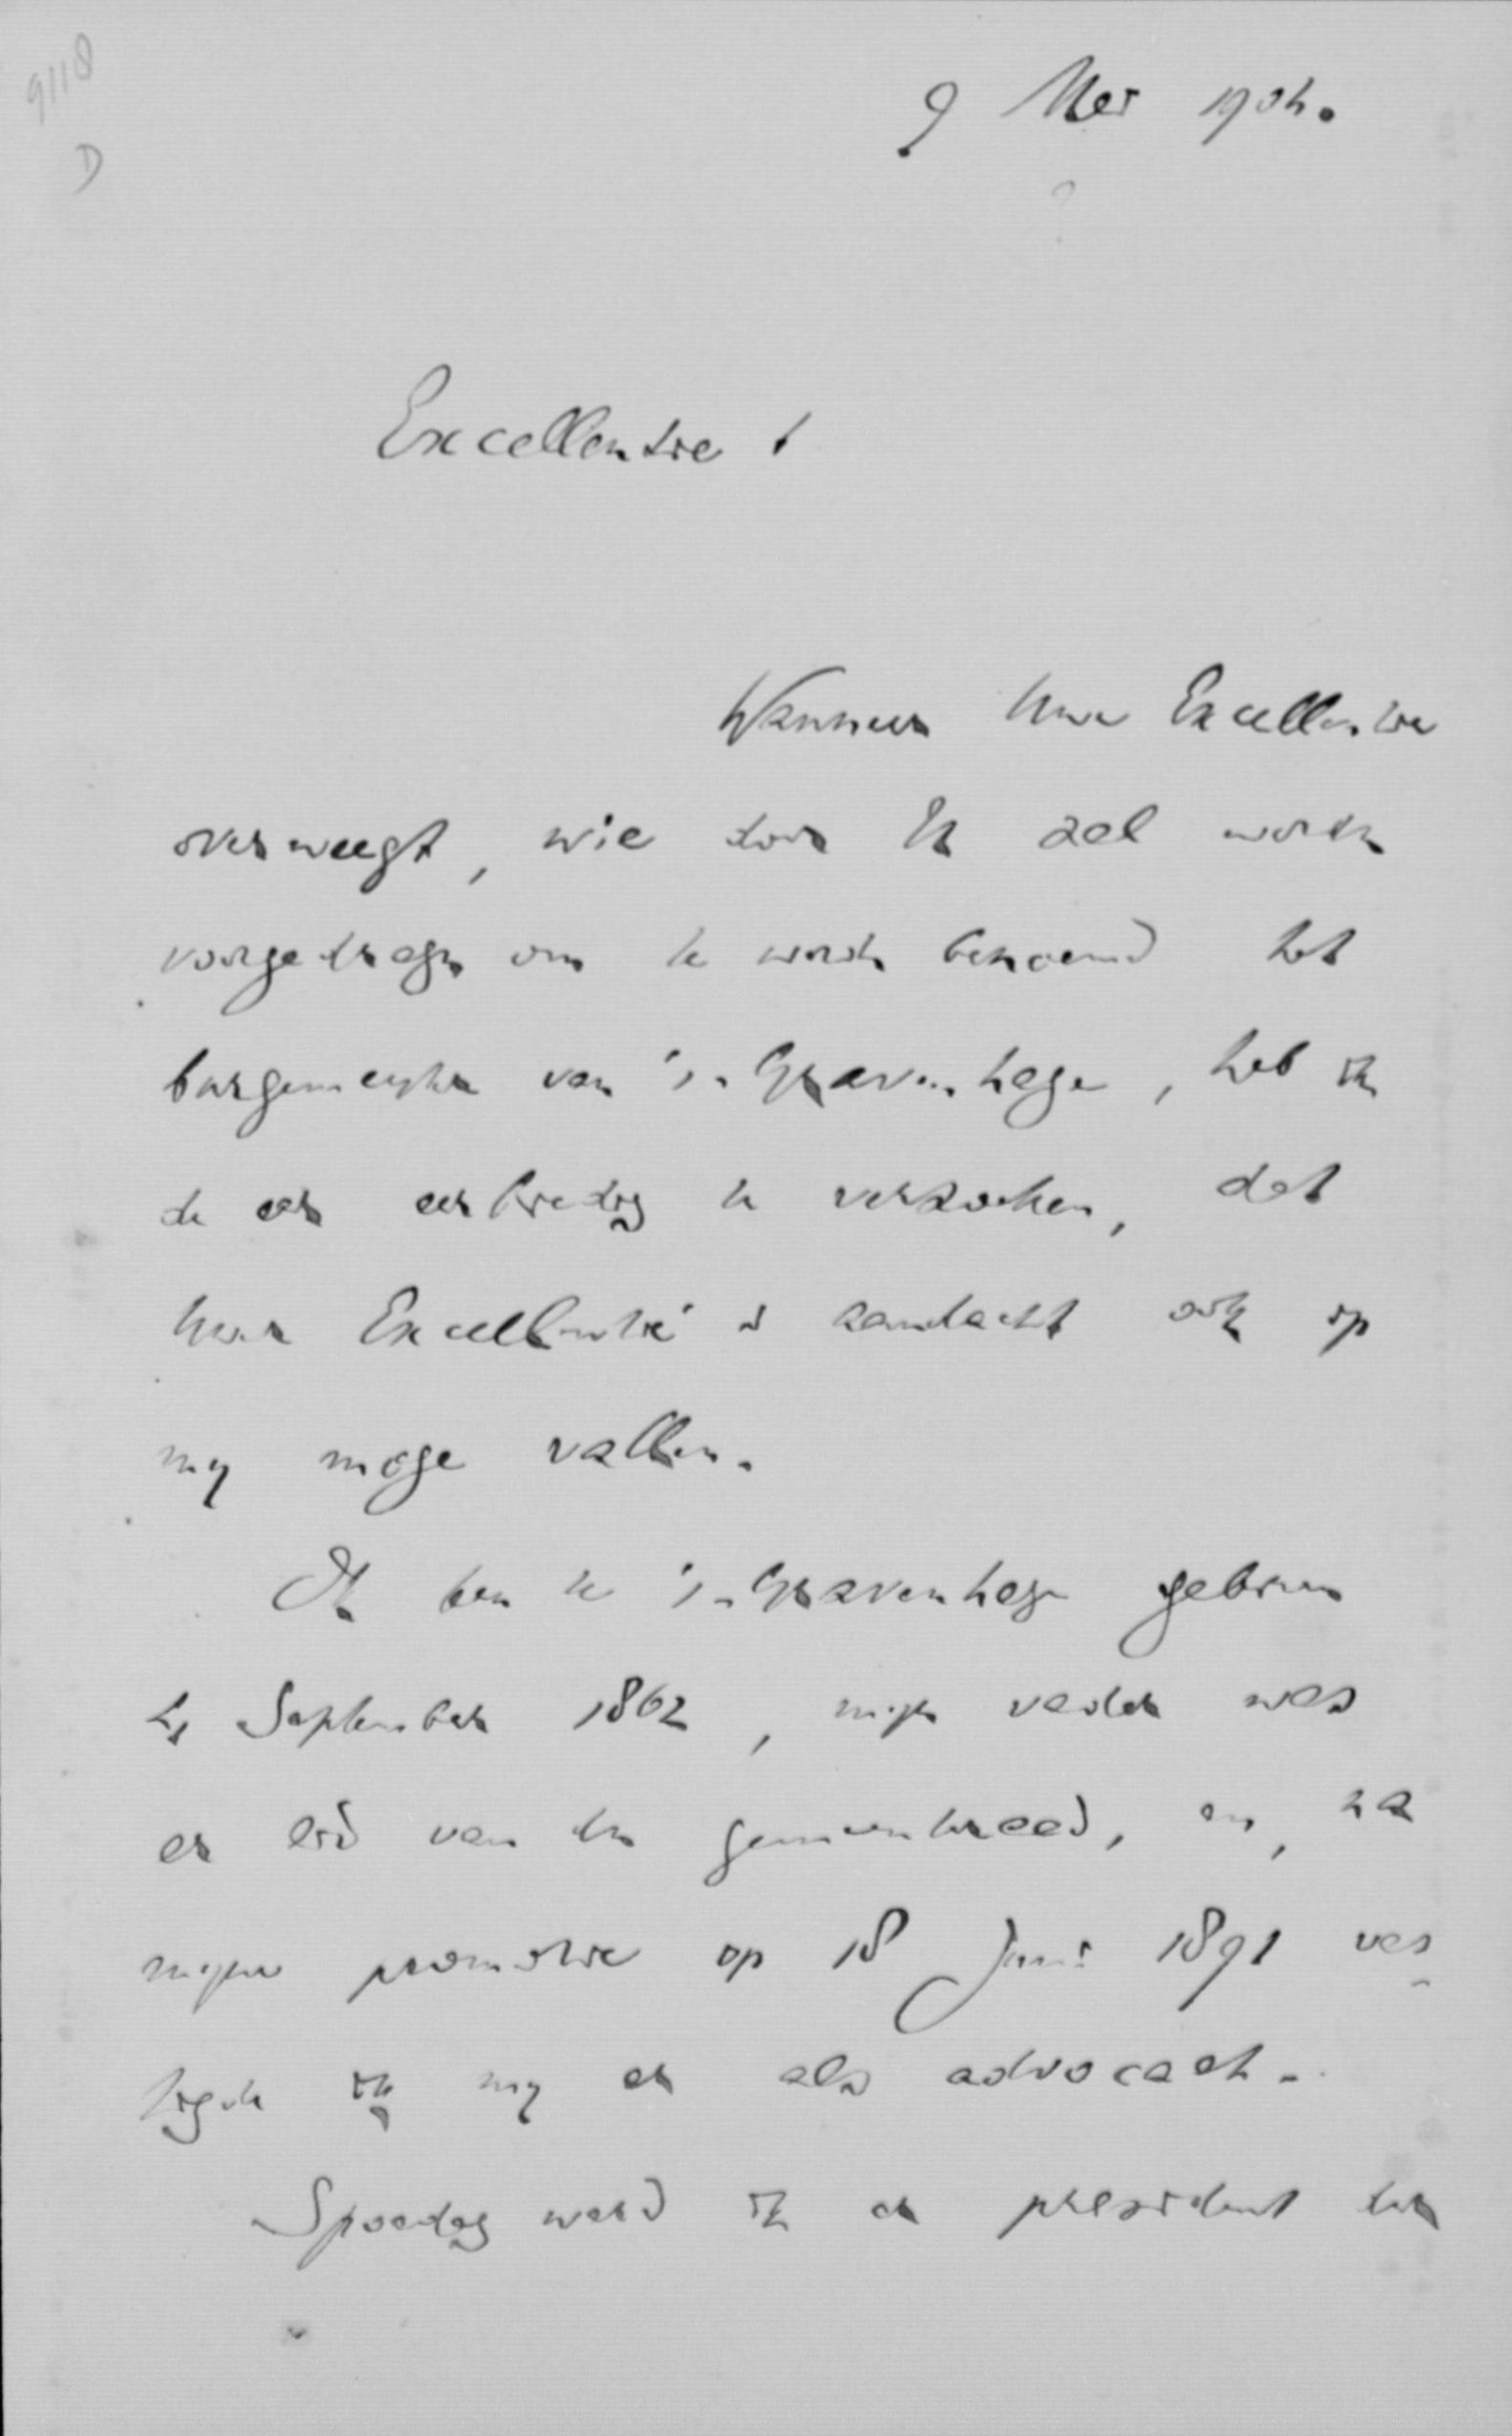 9118
D
9 Mei 1904.
Excellentie!
Wanneer Uwe Excellentie
overweegt, wie door U zal worden
voorgedragen om te worden benoemd tot
burgemeester van 's-Gravenhage, heb ik
de eer eerbiedig te verzoeken, dat
Uwe Excellentie's aandacht ook op
mij moge vallen.
Ik ben te 's-Gravenhage geboren
September 1862, mijn vader was
er lid van den gemeenteraad, en, na
mijne promotie op 18 Juni 1891 ves-
tigde ik mij er als advocaat.
Spoedig werd ik er president der